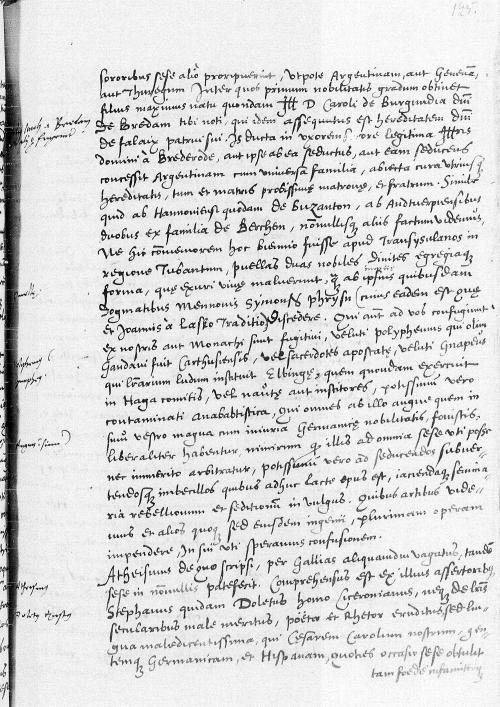 195.
sororibus sese aliò proripuerint, utpote Argentinam, aut Genevā,
aut Thuregum Inter quos primum nobilitatis gradum obtinet
filius maximus natu quondam Ill̄ D Caroli de Burgundia dn̄i
de Bredam tibi noti, qui idem assequutus est hereditatem dn̄i
de Falaix patrui sui. Is ducta in uxorem sorore legitima Ill̄ris
domini a Brederode, aut ipse ab ea seductus, aut eam seducens
concessit Argentinam cum universa familia, abiecta cura utriusq̧
hereditatis, tum et matris probissimę matronę, et fratrum. Simile
quid ab Hannoniensi quodam de Buzanton, ab Andtuerpiensibus
duobus ex familia de Berchen, nōnullisq̧ aliis factum videmus
Ne hic cōmemorem hoc biennio fuisse apud Transysulanos in
regione Tubantum, puellas duas nobiles divites egregiaq̧
forma, quę exuri vivę maluerunt, q̄ ab impiis quibusdam
Dogmatibus Mennonis Symonis phrysii (cuius eadem est quę
et Joannis a Lasko Traditio) discedere. Qui aut ad vos confugiunt
ex nostris aut Monachi sunt fugitivi, veluti Polyphemus qui olim
Gandavi fuit Carthusiensis, vel sacerdotes apostatę, veluti Gnapeus
qui lr̄arum ludum instituit Elbingę, quem quondam exercuit
in Haga comitis, vel nautę aut institores, potissimum vero
contaminati Anabaptistica, qui omnes ab illo augure quem in
sinu vestro magna cum iniuria Germanicę nobilitatis, fovistis,
liberaliter habentur, nimirum q̄ illis ad omnia sese uti posse
nec immerito arbitratur, potissimum vero ad seducendos subver-
tendosq̧ imbecillos quibus adhuc lacte opus est, iaciendaq̧ semina-
ria rebellionum et seditionum in vulgus. Quibus artibus vide-
mus et alios quoq̧ sed eiusdem ingenii, plurimam operam
impendere, In sui uti speramus confusionem.
Atheismus de quo scripsi, per Gallias aliquamdiu vagatus, tandē
sese in nōnullis patefecit. Comprehensus est ex illius assertoribꝫ
Stephanus quidam Doletus homo Ciceronianus, neq̧ de lr̄is
secularibus male meritus, poëta et Rhetor eruditus sed lin-
gua maledicentissima, qui Cesarem Carolum nostrum, gen-
temq̧ Germanicam, et Hispanam, quoties occasio sese obtulit
tam foede infamitq̧